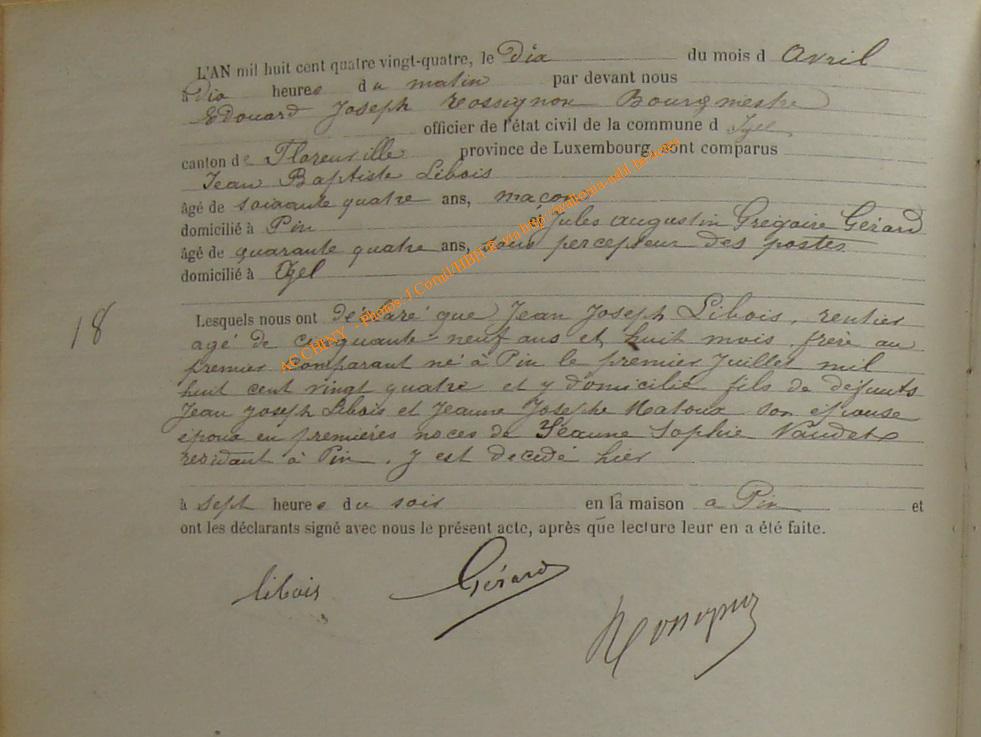 L'AN mil huit cent quatre vingt-quatre, le Dix du mois d Avril
à dix heures du matin par devant nous
Edouard Joseph Rossignon Bourgmestre
officier de l'état civil de la commune d Izel
canton de Florenville province de Luxembourg, sont comparus
Jean Baptiste Libois
âgé de soixante quatre ans, maçon
domicilié à Pin & Jules Augustin Grégoire Gérard
âgé de quarante quatre ans, sous percepteur des postes
domicilié à Izel
18
Lesquels nous ont déclaré que Jean Joseph Libois, rentier
agé de cinquante neuf ans et huit mois, frère au
premier comparant né à Pin le premier Juillet mil
huit cent vingt quatre et y domicilié fils de défunts
Jean Joseph Libois et Jeanne Josephe son épouse
époux en premières noces de Jeanne Sophie Naudet
résidant à Pin, y est décédé hier
à sept heures du soir en la maison a Pin et
ont les déclarants signé avec nous le présent acte, après que lecture leur en a été faite.
libois Gérard
Rossignon
AC CHINY - Photos J.Cornil/HBH